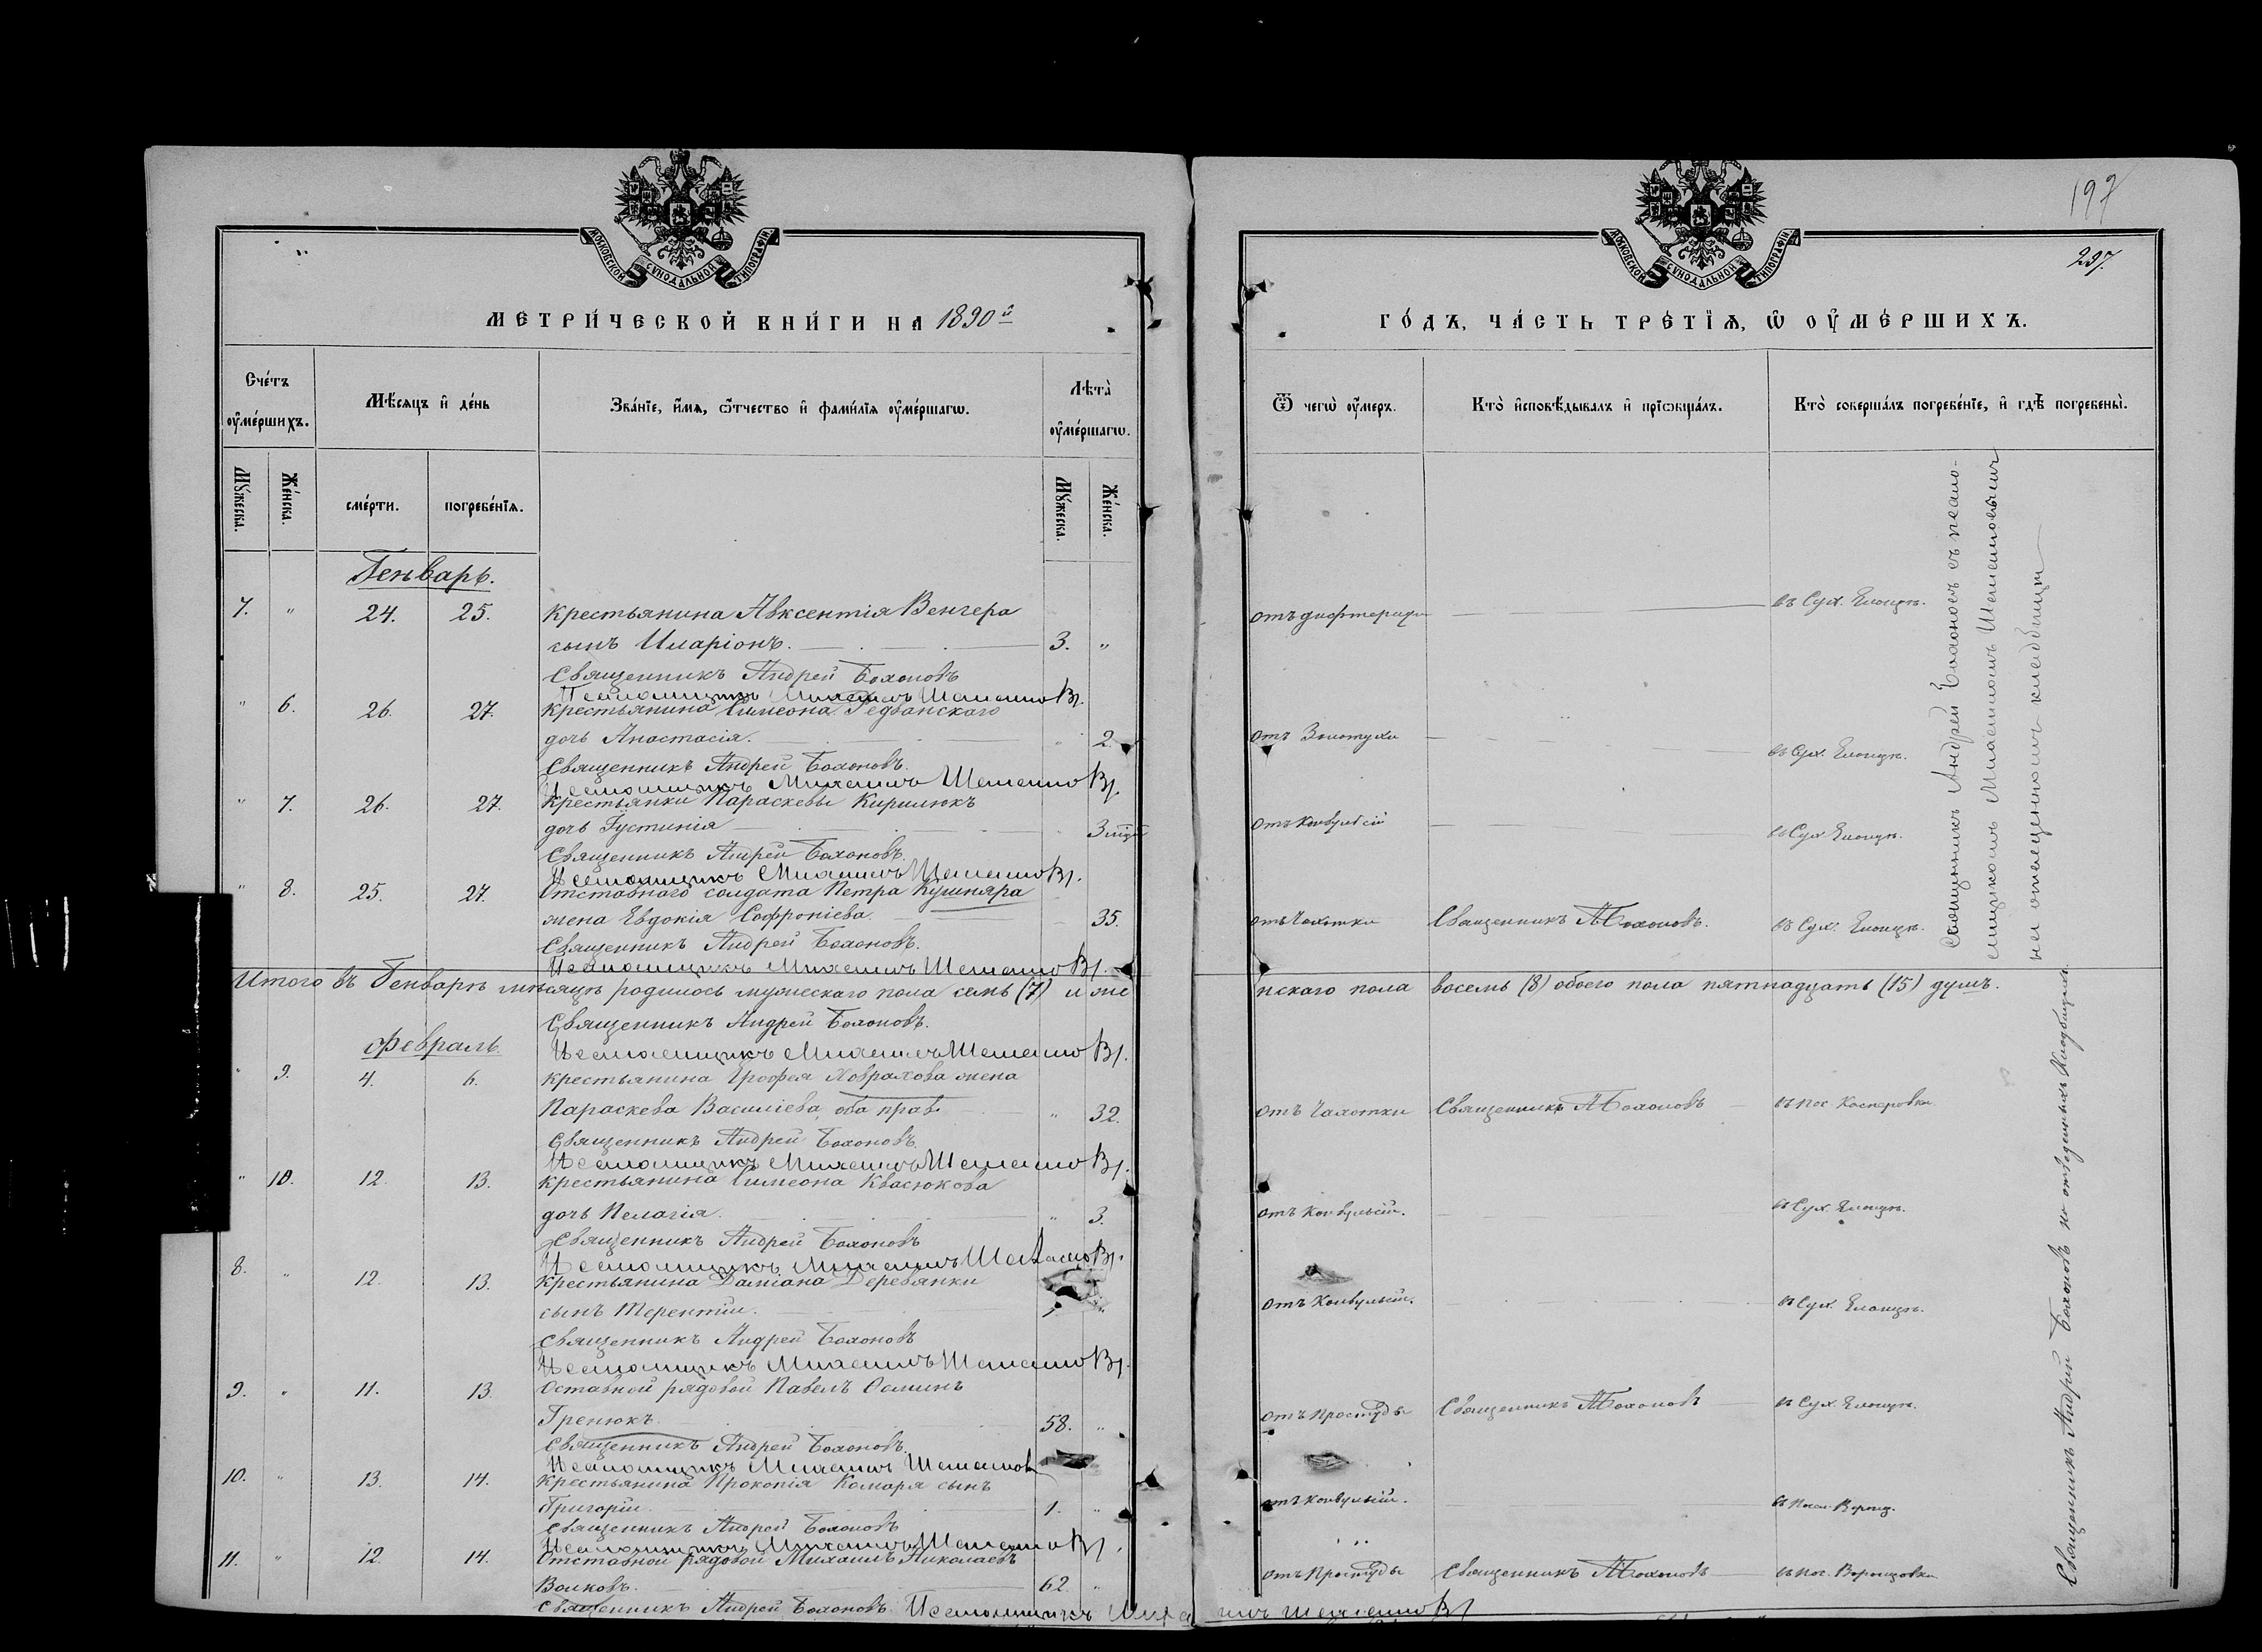 197
297.
МОСКОВСКОЙ СѴНОДАЛЬНОЙ ТИПОГРАФІИ
МОСКОВСКОЙ СѴНОДАЛЬНОЙ ТИПОГРАФІИ
МЕТРИ́ЧЕСКОЙ КНИ́ГИ НА 1890й
ГО́ДЪ, ЧА́СТЬ ТРЕ́ТІѦ, Ѡ҆ ОУ҆МЕ́РШИХЪ.
Сче́тъ оу҆ме́ршихъ.
Мѣ́сѧцъ и҆ де́нь
Зва́нїе, и҆́мѧ, ѻ҆́тчество и҆ фами́лїѧ оу҆ме́ршагѡ.
Лѣта̀ оу҆ме́ршагѡ.
Ѿ чегѡ̀ оу҆́меръ.
Кто̀ и҆сповѣ́дывалъ и҆ прїѡбща́лъ.
Кто̀ соверша́лъ погребе́нїе, и҆ гдѣ̀ погребены̀.
Мꙋ́жеска.
Же́нска.
сме́рти.
погребе́нїѧ.
Мꙋ́жеска.
Же́нска.
Генварь.
7. " 24. 25. Крестьянина Авксентія Венгера
сынъ Иларіонъ. 3. " отъ дифтерита въ Сух. Еланцѣ.
Священникъ Андрей Бохоновъ
Псаломщикъ Михаилъ
" 6. 26. 27. Крестьянина Симеона
дочь Анастасія. " 2. отъ Золотухи въ Сух. Еланцѣ.
Священникъ Андрей Бохоновъ.
Псаломщикъ Михаилъ
" 7. 26. 27. Крестьянки Параскевы Кирилюкъ
дочь Іустинія 3 отъ Конвульсій въ Сух. Еланцѣ.
Священникъ Андрей Бохоновъ.
Псаломщикъ Михаилъ
" 8. 25. 27. Отставного солдата Петра Кушняра
жена Евдокія Софроніева. 35. отъ Чахотки Священникъ А Бохоновъ. въ Сух. Еланцѣ.
Священникъ Андрей Бохоновъ.
Псаломщикъ Михаилъ
Итого въ Генварѣ мѣсяцѣ родилось мужескаго пола семь (7) и женскаго пола восемь (8) обоего пола пятнадцать (15) душъ.
Священникъ Андрей Бохоновъ.
Псаломщикъ Михаилъ
Февраль
" 9. 4. 6. Крестьянина Ерофея Ховрахова жена
Параскева Василіева, оба прав. " 32. отъ Чахотки Священникъ А Бохоновъ въ пос. Касперовкѣ
Священникъ Андрей Бохоновъ.
Псаломщикъ Михаилъ
" 10. 12. 13. Крестьянина Симеона Квасюкова
дочь Пелагія. " 3. отъ Конвульсій. въ Сух. Еланцѣ.
Священникъ Андрей Бохоновъ
Псаломщикъ Михаилъ
8. " 12. 13. Крестьянина Даміана Деревянки
сынъ Терентій. отъ Конвульсій. въ Сух. Еланцѣ.
Священникъ Андрей Бохоновъ
Псаломщикъ Михаилъ
9. " 11. 13. Оставной рядовой Павелъ
Гренюкъ. 58. " отъ Простуды Священникъ А Бохоновъ въ Сух. Еланцѣ.
Священникъ Андрей Бохоновъ.
Псаломщикъ Михаилъ
10. " 13. 14. Крестьянина Прокопія Комаря сынъ
Григорій. 1. " отъ Конвульсій. въ Посел. Воронц.
Священникъ Андрей Бохоновъ
Псаломщикъ Михаилъ
11. " 12. 14. Отставной рядовой Михаилъ Николаевъ
Волковъ. 62. " отъ Простуды Священникъ А Бохоновъ въ пос. Воронцовкѣ
Священникъ Андрей Бохоновъ. Псаломщикъ Михаилъ
Священникъ Андрей Бохоновъ съ псало-
мщикомъ Михаиломъ
на отведенномъ кладбищѣ
Священникъ Андрей Бохоновъ на отведенныхъ Кладбищахъ.